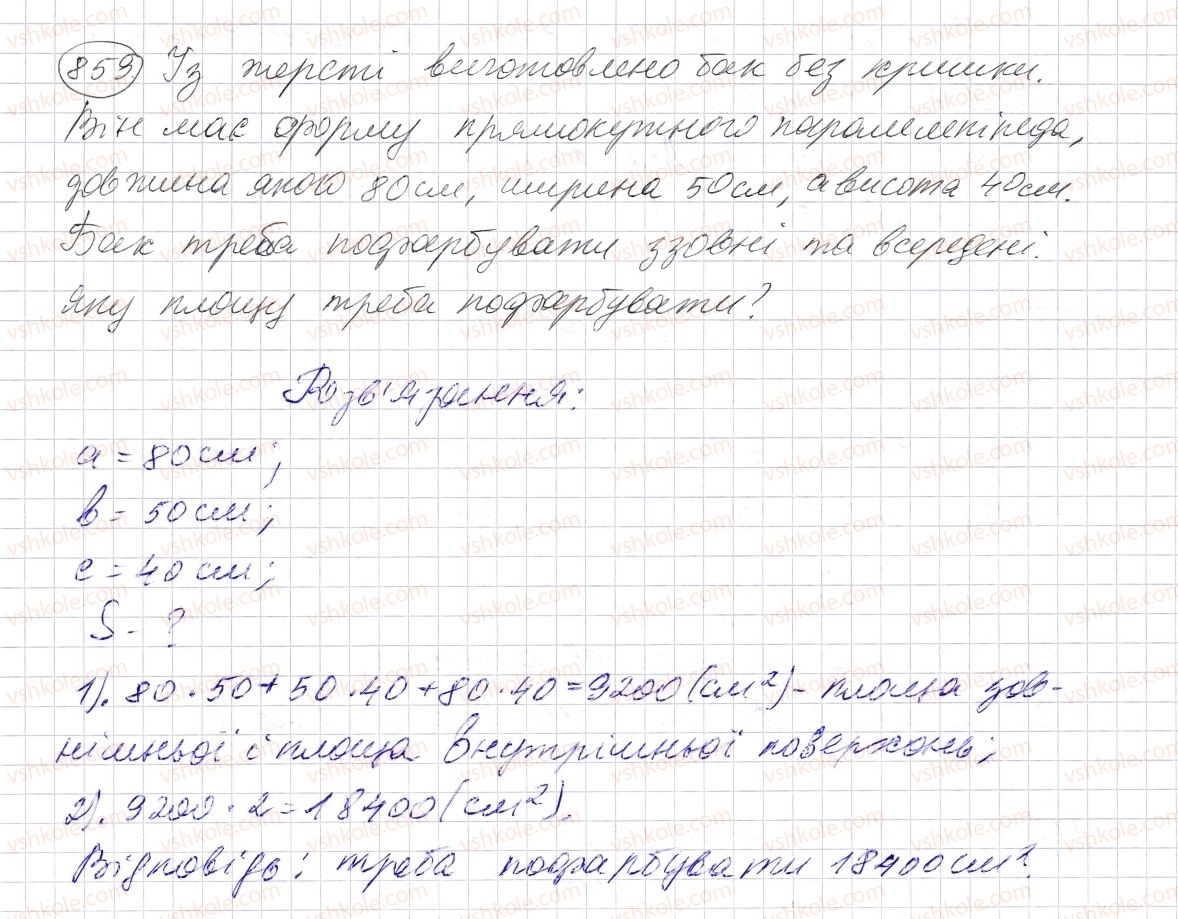 859 Із жерсті виготовлено бак без кришки.
Він має форму прямокутного паралелепіпеда,
довжина якого 80см, ширина 50см, а висота 40см.
Бак треба пофарбувати ззовні та всередені.
Яку площу треба пофарбувати?
Розв'язання:
a = 80 см;
b = 50 см;
c = 40 см;
S - ?
1). 80 · 50 + 50 · 40 + 80 · 40 = 9200 (см²) - площа зов-
нішньої і площа внутрішньої поверхонь;
2). 9200 · 2 = 18400 (см²).
Відповідь: треба пофарбувати 18400 см².
vshkole.com